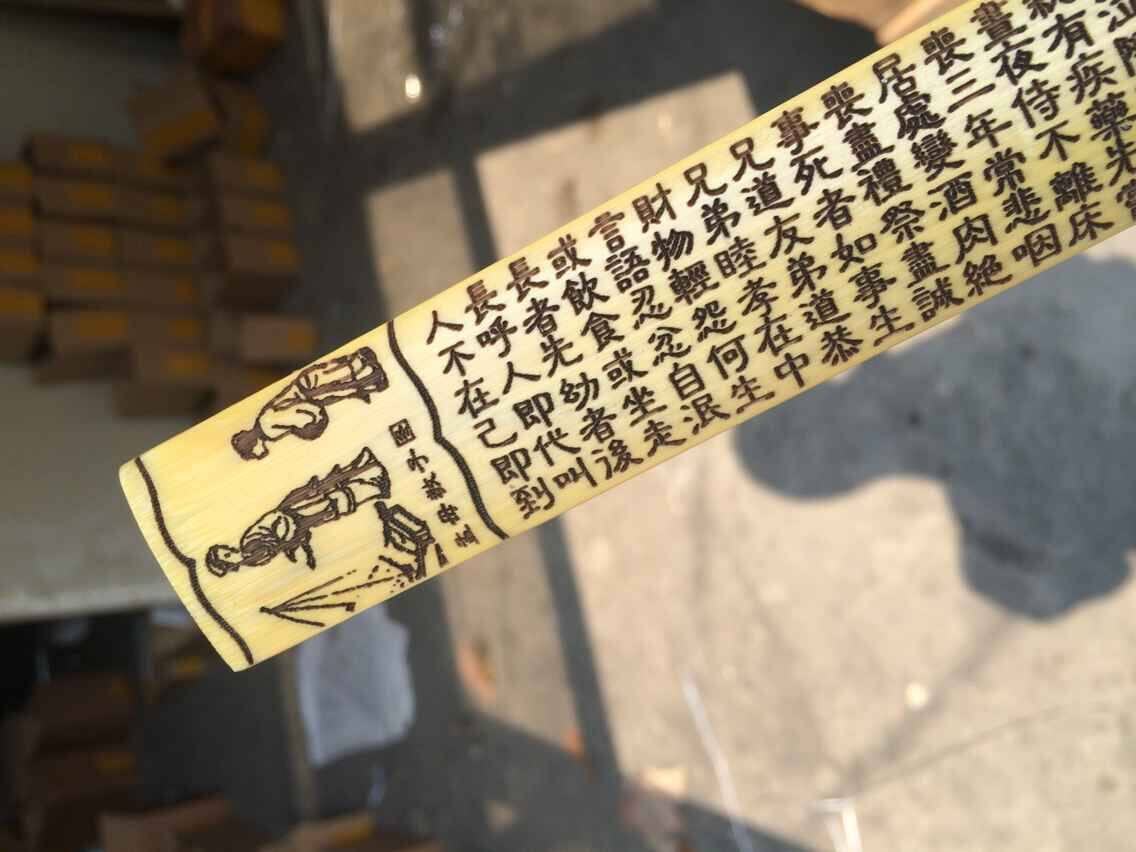 泣
親有疾藥先嘗
晝夜侍不離床
喪三年常悲咽
居處變酒肉絕
喪盡禮祭盡誠
事死者如事生
兄道友弟道恭
兄弟睦孝在中
財物輕怨何生
言語忍忿自泯
或飲食或坐走
長者先幼者後
長呼人即代叫
人不在己即到